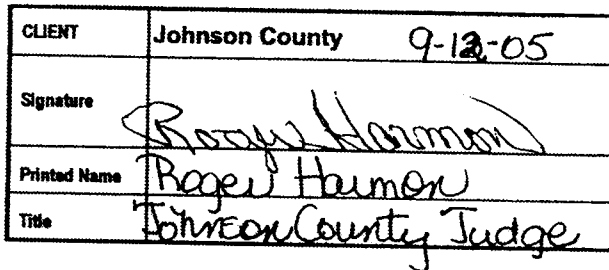 CLIENT Johnson County 9-12-05
Signature Roger Harmon
Printed Name Roger Harmon
Title Johnson County Judge